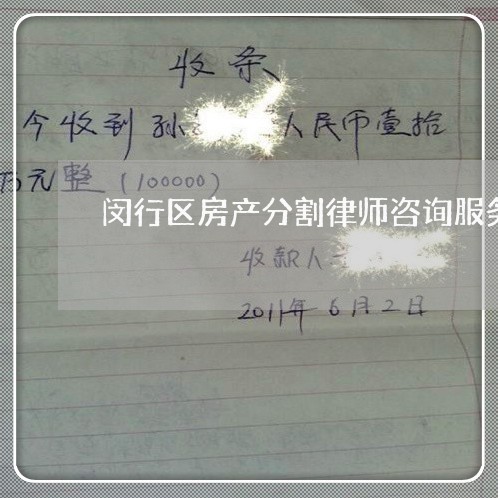 收条
今收到孙 人民币壹拾
万元整（100000）
闵行区房产分割律师咨询服务
收款人
2011年6月2日